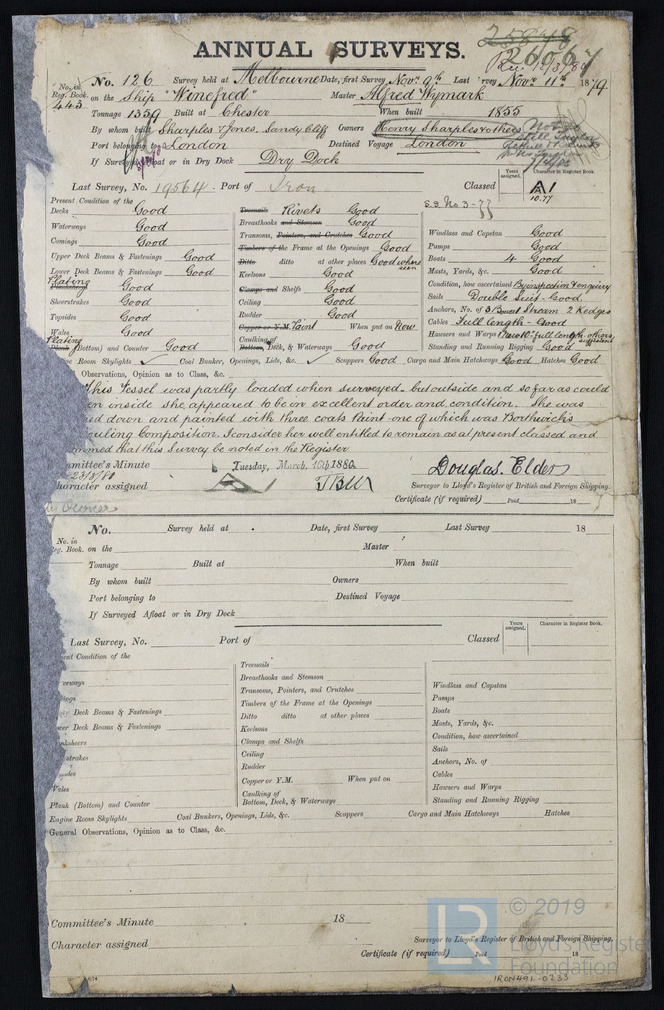 25848
26067
ANNUAL SURVEYS.
No. in Reg. Book. 443
No. 126 Survey held at Melbourne Date, first Survey Novr 9th Last Survey Novr 11th 1879.
on the Ship "Winefred" Master Alfred Wymark
Tonnage 1359 Built at Chester When built 1855
By whom built Sharples & Jones, Sandy Cliff Owners Henry Sharples & others
Port belonging to London Destined Voyage London
If Surveyed Afloat or in Dry Dock Dry Dock
Last Survey, No. 19564 Port of Iron Classed
Years assigned. Character in Register Book.
A1
10.77
S.S. No 3-77
Present Condition of the
Decks Good
Waterways Good
Comings Good
Upper Deck Beams & Fastenings Good
Lower Deck Beams & Fastenings Good
Plating Good
Sheerstrakes Good
Topsides Good
Wales Good
Plating (Bottom) and Counter Good
Treenails Rivets Good
Breasthooks and Stemson Good
Transoms, Pointers, and Crutches Good
Timbers of the Frame at the Openings Good
Ditto ditto at other places Good where seen
Keelsons Good
Clamps and Shelfs Good
Ceiling Good
Rudder Good
Copper or Y.M. Paint When put on Now
Caulking of Bottom, Deck, & Waterways Good
Windlass and Capstan Good
Pumps Good
Boats 4 Good
Masts, Yards, &c. Good
Condition, how ascertained By inspection & enquiry
Sails Double Suit - Good
Anchors, No. of 3 Bower 1 Stream 2 Kedges
Cables Full length - Good
Hawsers and Warps full length, others sufficient
Standing and Running Rigging Good
Engine Room Skylights ✓ Coal Bunker, Openings, Lids, &c. ✓ Scuppers Good Cargo and Main Hatchways Good Hatches Good
Observations, Opinion as to Class, &c.
This Vessel was partly loaded when surveyed - but outside and so far as could
inside she appeared to be in excellent order and condition. She was
down and painted with three coats Paint - one of which was Borthwick's
Composition. I consider her well entitled to remain as at present classed and
that this Survey be noted in the Register
Committee's Minute Tuesday, March, 16th 1880 Douglas. Elder
23/3/80
Character assigned A1 Surveyor to Lloyd's Register of British and Foreign Shipping.
Certificate (if required) Paid 18
No. in Reg. Book.
No. Survey held at Date, first Survey Last Survey 18
on the Master
Tonnage Built at When built
By whom built Owners
Port belonging to Destined Voyage
If Surveyed Afloat or in Dry Dock
Last Survey, No. Port of Classed
Years assigned. Character in Register Book.
Present Condition of the
Upper Deck Beams & Fastenings
Lower Deck Beams & Fastenings
Wales
Plank (Bottom) and Counter
Treenails
Breasthooks and Stemson
Transoms, Pointers, and Crutches
Timbers of the Frame at the Openings
Ditto ditto at other places
Keelsons
Clamps and Shelfs
Ceiling
Rudder
Copper or Y.M. When put on
Caulking of
Bottom, Deck, & Waterways
Windlass and Capstan
Pumps
Boats
Masts, Yards, &c.
Condition, how ascertained
Sails
Anchors, No. of
Cables
Hawsers and Warps
Standing and Running Rigging
Engine Room Skylights Coal Bunkers, Openings, Lids, &c. Scuppers Cargo and Main Hatchways Hatches
General Observations, Opinion as to Class, &c.
Committee's Minute 18
Character assigned Surveyor to Lloyd's Register of British and Foreign Shipping.
Certificate (if required) Paid 18
LR
© 2019
Lloyd's Register
Foundation
IRON491-0233